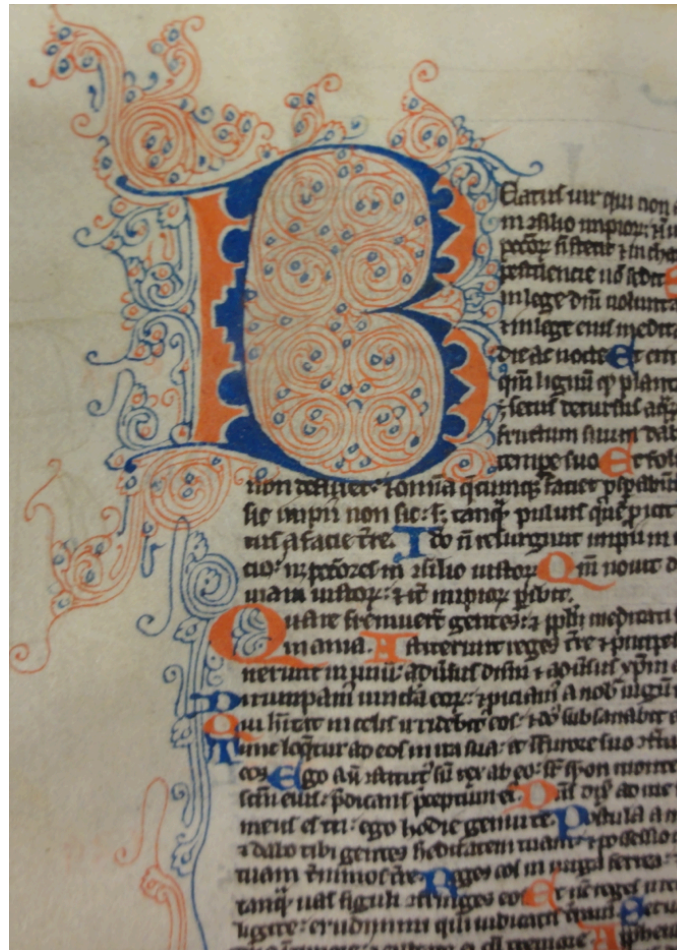 Beatus uir qui non
in ꝯsilio impioꝝ: ⁊ in
pctõꝝ ñ stetit ⁊ in cha
pestilencie nõ sedit
in lege dñi uolunta
⁊ in lege eius medita
die ac nocte Et erit
qm̃ lignũ qđ plant
secus decursus aqꝝ
fructum suum dab
tempe suo Et foli
non defluet: ⁊ omĩa q̃cumqꝫ faciet ꝓspabũt
sic impii non sic: s; tanqꝫ puluis quẽ ꝓicit
tus a facie t̃re. Ido ñ resurgunt impii in
cio: nqꝫ pctõres in ꝯsilio iustoꝝ Qm̃ nouit d
uiam iustoꝝ: ⁊ it̃ impioꝝ ꝑibit.
Quare fremuert̃ gentes: ⁊ ppl̃i meditati
inania. Astiterunt reges t̃re ⁊ ꝑncipes
nerunt in unũ: aduẽsus dñm ⁊ aduẽsus xp̃m
Dirumpam̃ uincla eoꝝ: ⁊ ꝓiciam̃ a nob̃ iugũ
Qui hĩtat in celis irridebit eos: ⁊ dñs subsannabit
Tunc loq̃tur ad eos in ira sua: et ĩ furore suo
eos Ego aũ ꝯstitut̃ sũ rex ab eo: suꝑ syon monte
scm̃ eius: p̃dicans p̃ceptum ei. Dñs dix̃ ad me
meus es tu: ego hodie genui te. Postula a m
⁊ dabo tibi gentes hẽditatem tuam: ⁊ possessio
tuam t̃minos t̃re Reges eos in uirga ferrea:
tanqꝫ uas figuli ꝯfringes eos Et nc̃ reges
ligite: erudimini qui iudicatis t̃ram Seru
Apphen